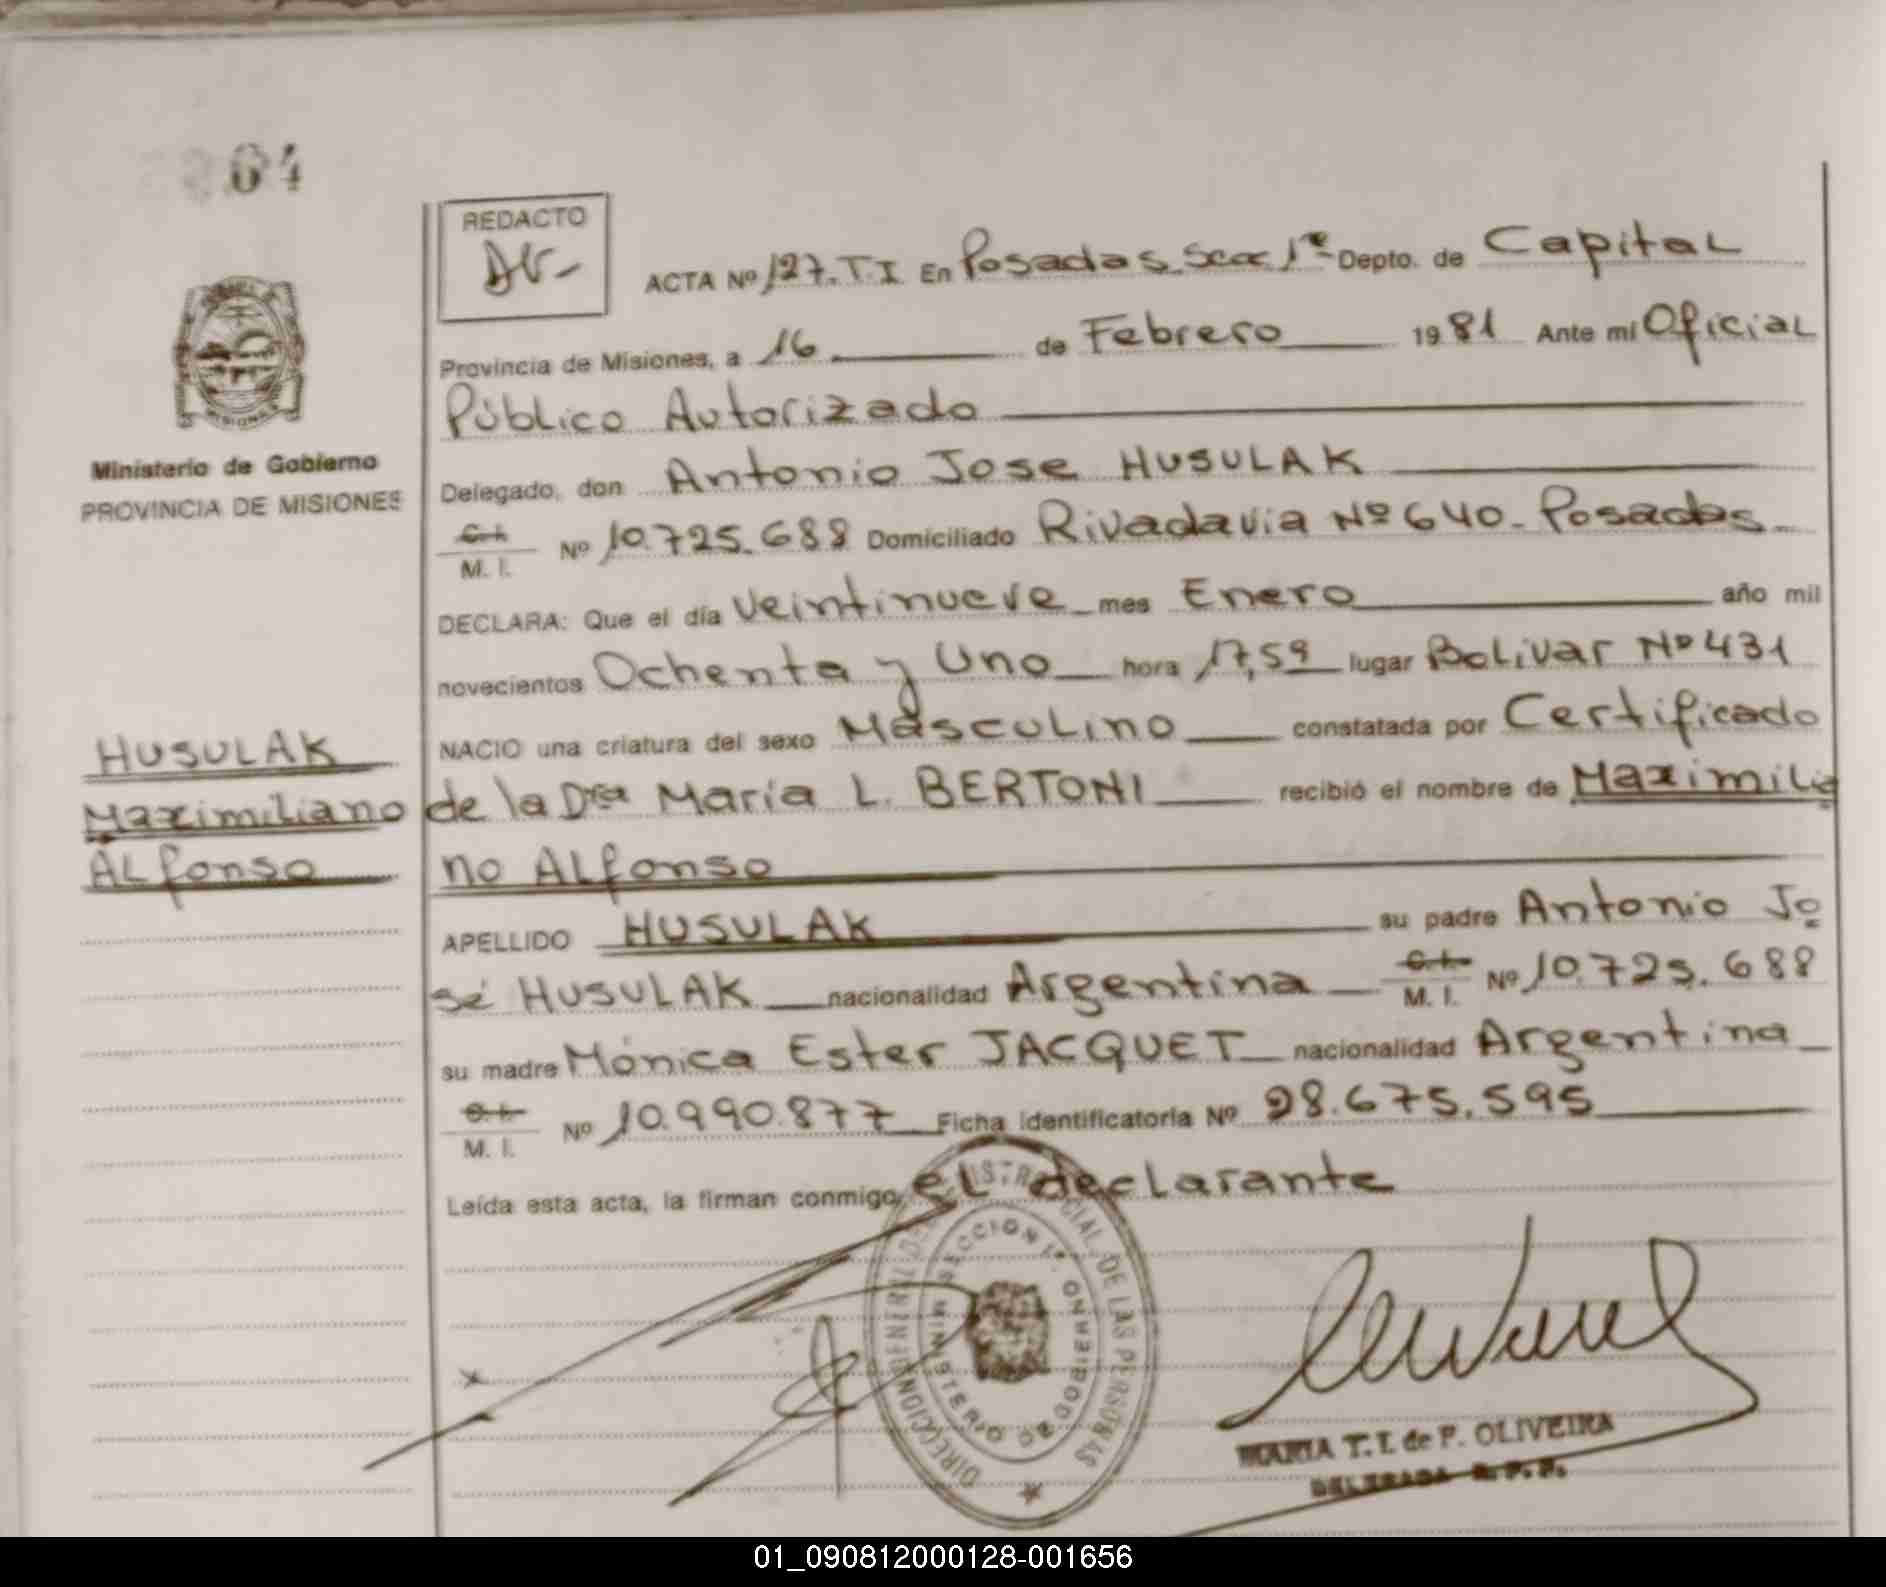 64
REDACTO
ACTA Nº 127. T. I En Posadas. Secc 1ª Depto. de Capital
Provincia de Misiones, a 16 de Febrero 1981 Ante mí Oficial
Público Autorizado
Ministerio de Gobierno
PROVINCIA DE MISIONES
Delegado, don Antonio Jose HUSULAK
C.I.
M. I. Nº 10.725.688 Domiciliado Rivadavia Nº 640. Posadas
DECLARA: Que el día Veintinueve mes Enero año mil
novecientos Ochenta y Uno hora 17,59 lugar Bolivar Nº 431
NACIO una criatura del sexo Masculino constatada por Certificado
de la Dra María L. BERTONI recibió el nombre de Maximilia
no Alfonso
HUSULAK
Maximiliano
Alfonso
APELLIDO HUSULAK su padre Antonio Jo
sé HUSULAK nacionalidad Argentina C.I.
M. I. Nº 10.725.688
su madre Mónica Ester JACQUET nacionalidad Argentina
C.I.
M. I. Nº 10.990.877 Ficha identificatoria Nº 28.675.595
Leída esta acta, la firman conmigo, el declarante
DIRECCION GENERAL DEL REGISTRO PROVINCIAL DE LAS PERSONAS
SECCION 1ª
MINISTERIO DE GOBIERNO
MARIA T. I. de P. OLIVEIRA
DELEGADA R. P. P.
01_090812000128-001656